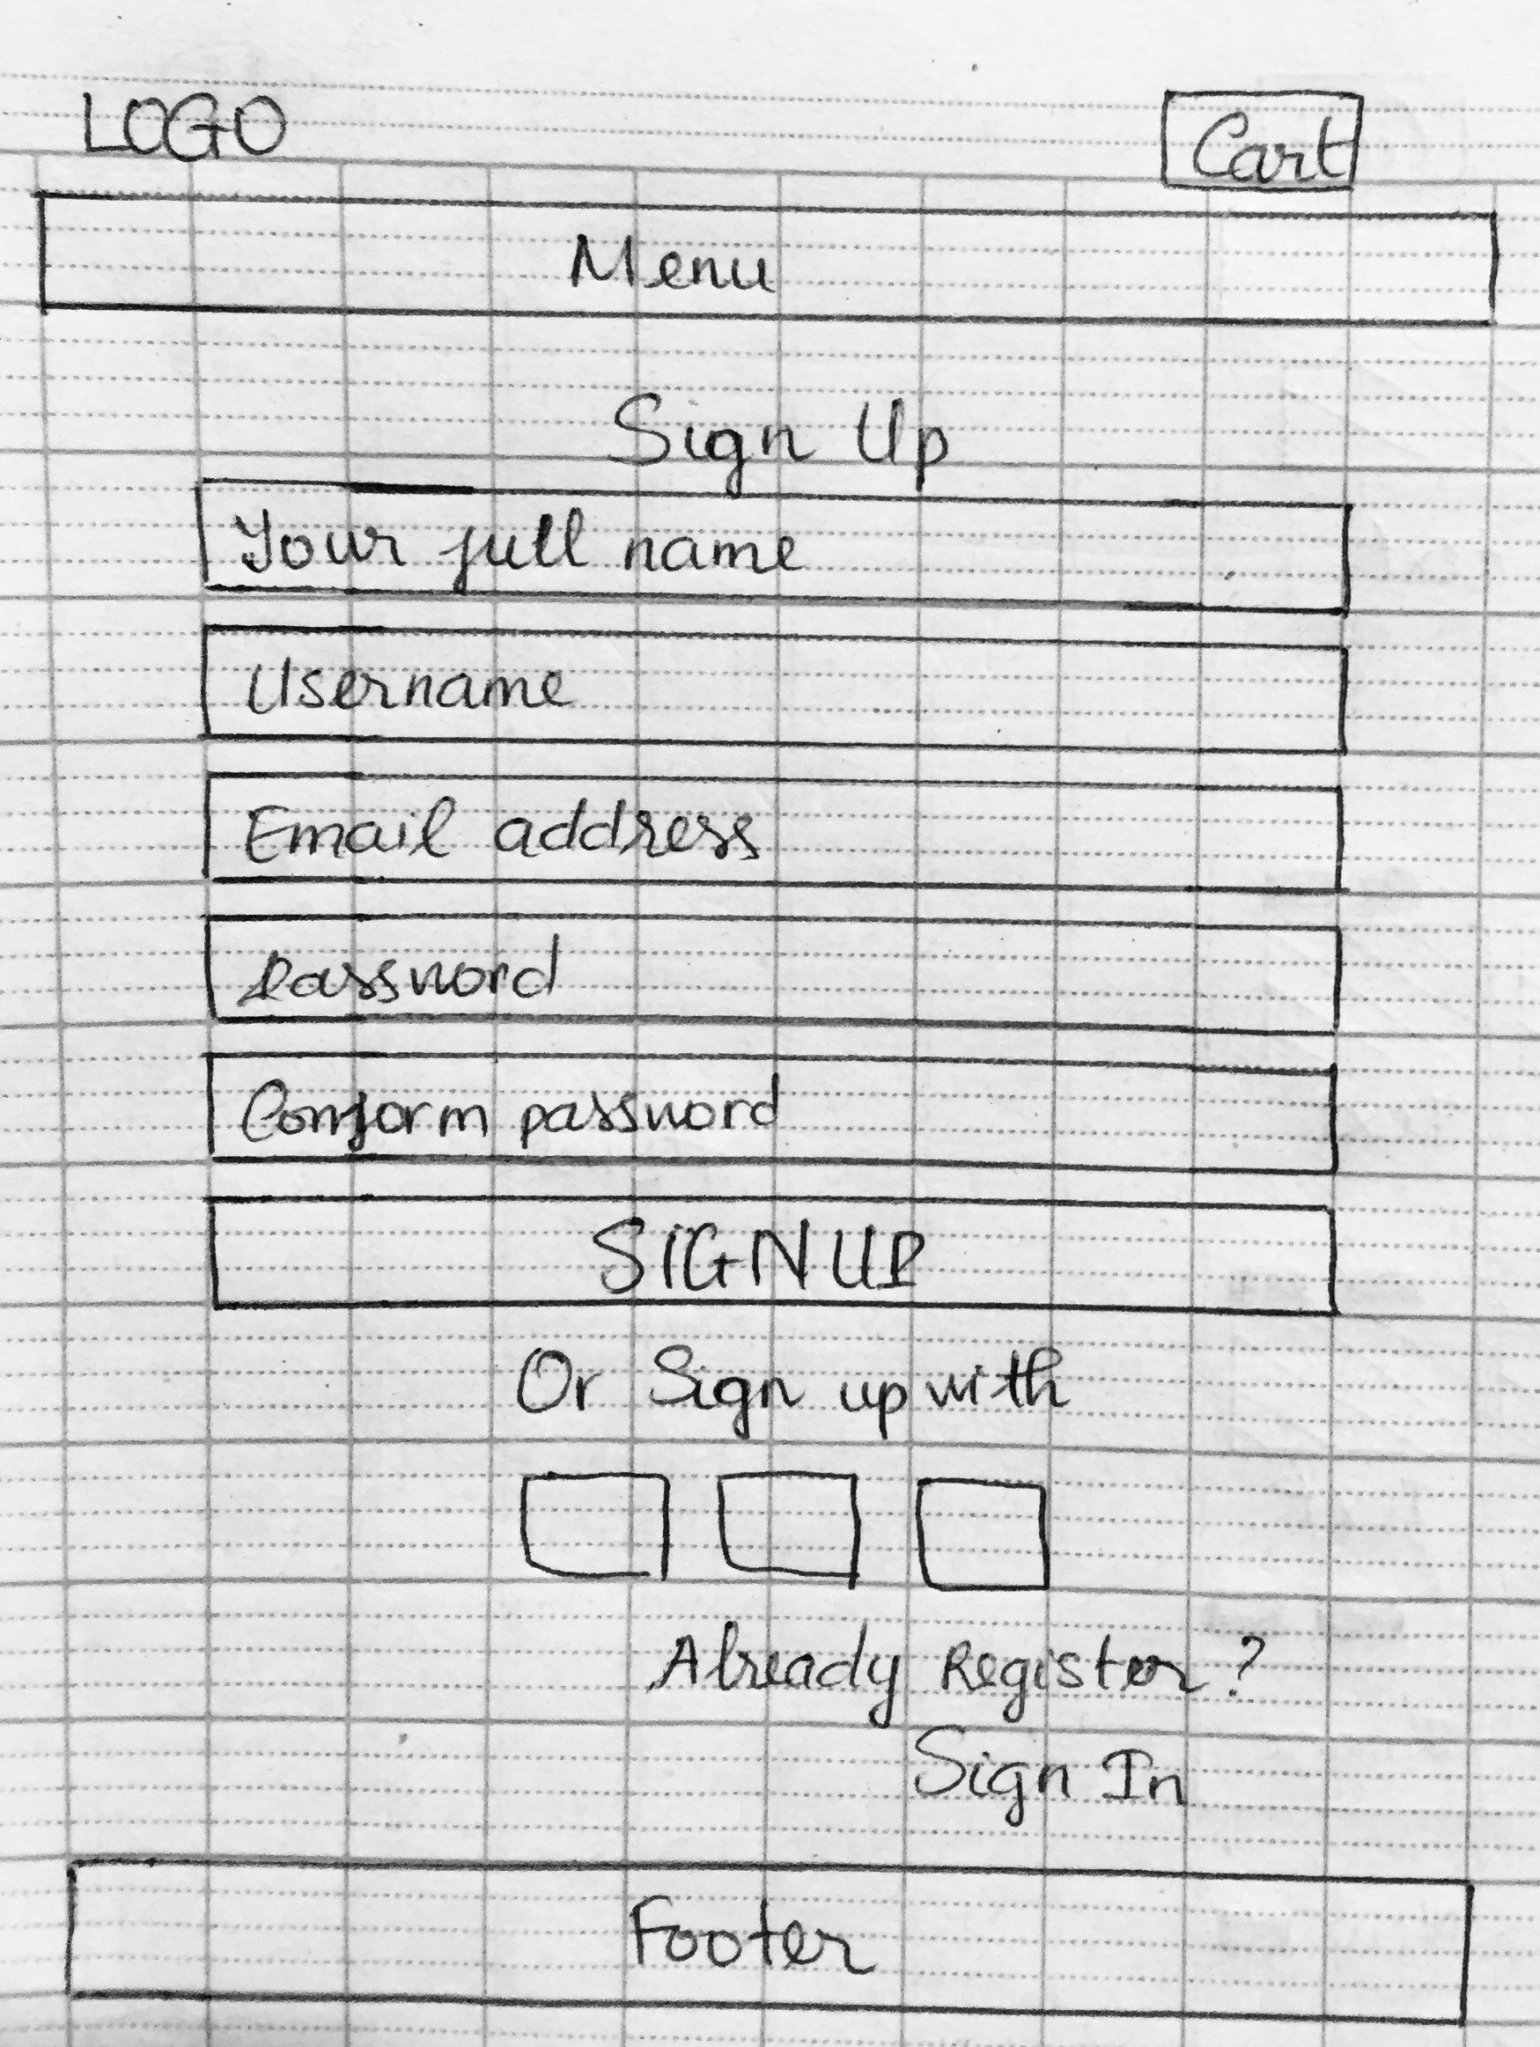 LOGO
Cart
Menu
Sign Up
Your full name
Username
Email address
Password
Conform password
SIGN UP
Or Sign up with
Already Register?
Sign In
Footer